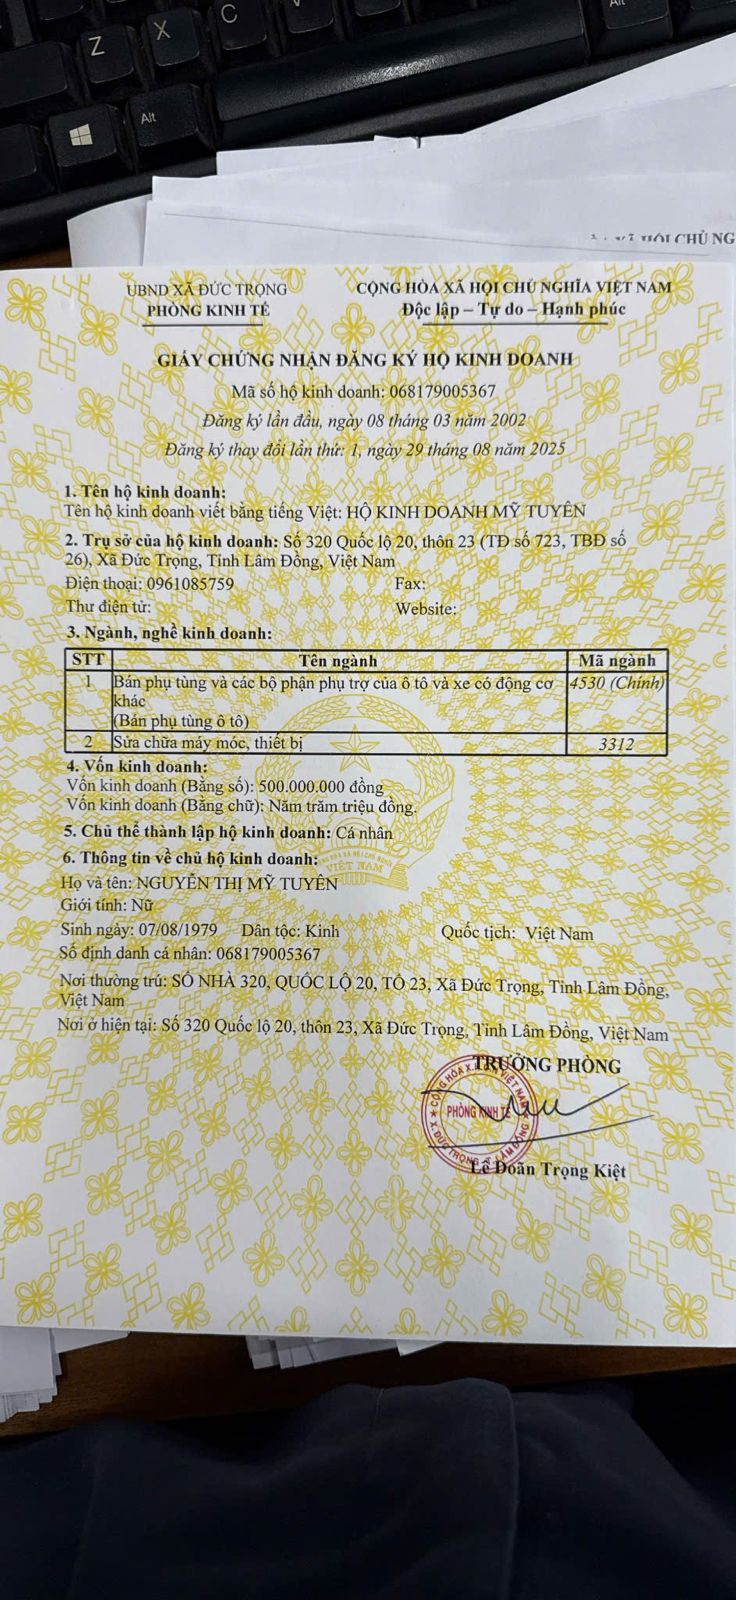 Z
X
C
Alt
Alt
XÃ HỘI CHỦ NG
UBND XÃ ĐỨC TRỌNG
PHÒNG KINH TẾ
CỘNG HÒA XÃ HỘI CHỦ NGHĨA VIỆT NAM
Độc lập – Tự do – Hạnh phúc
GIẤY CHỨNG NHẬN ĐĂNG KÝ HỘ KINH DOANH
Mã số hộ kinh doanh: 068179005367
Đăng ký lần đầu, ngày 08 tháng 03 năm 2002
Đăng ký thay đổi lần thứ: 1, ngày 29 tháng 08 năm 2025
1. Tên hộ kinh doanh:
Tên hộ kinh doanh viết bằng tiếng Việt: HỘ KINH DOANH MỸ TUYÊN
2. Trụ sở của hộ kinh doanh: Số 320 Quốc lộ 20, thôn 23 (TĐ số 723, TBĐ số
26), Xã Đức Trọng, Tỉnh Lâm Đồng, Việt Nam
Điện thoại: 0961085759 Fax:
Thư điện tử: Website:
3. Ngành, nghề kinh doanh:
STT Tên ngành Mã ngành
1 Bán phụ tùng và các bộ phận phụ trợ của ô tô và xe có động cơ 4530 (Chính)
khác
(Bán phụ tùng ô tô)
2 Sửa chữa máy móc, thiết bị 3312
4. Vốn kinh doanh:
Vốn kinh doanh (Bằng số): 500.000.000 đồng
Vốn kinh doanh (Bằng chữ): Năm trăm triệu đồng.
5. Chủ thể thành lập hộ kinh doanh: Cá nhân
6. Thông tin về chủ hộ kinh doanh:
VIỆT NAM
Họ và tên: NGUYỄN THỊ MỸ TUYÊN
Giới tính: Nữ
Sinh ngày: 07/08/1979 Dân tộc: Kinh Quốc tịch: Việt Nam
Số định danh cá nhân: 068179005367
Nơi thường trú: SỐ NHÀ 320, QUỐC LỘ 20, TỔ 23, Xã Đức Trọng, Tỉnh Lâm Đồng,
Việt Nam
Nơi ở hiện tại: Số 320 Quốc lộ 20, thôn 23, Xã Đức Trọng, Tỉnh Lâm Đồng, Việt Nam
TRƯỞNG PHÒNG
PHÒNG KINH TẾ
X. ĐỨC TRỌNG - T. LÂM ĐỒNG
Lê Doãn Trọng Kiệt